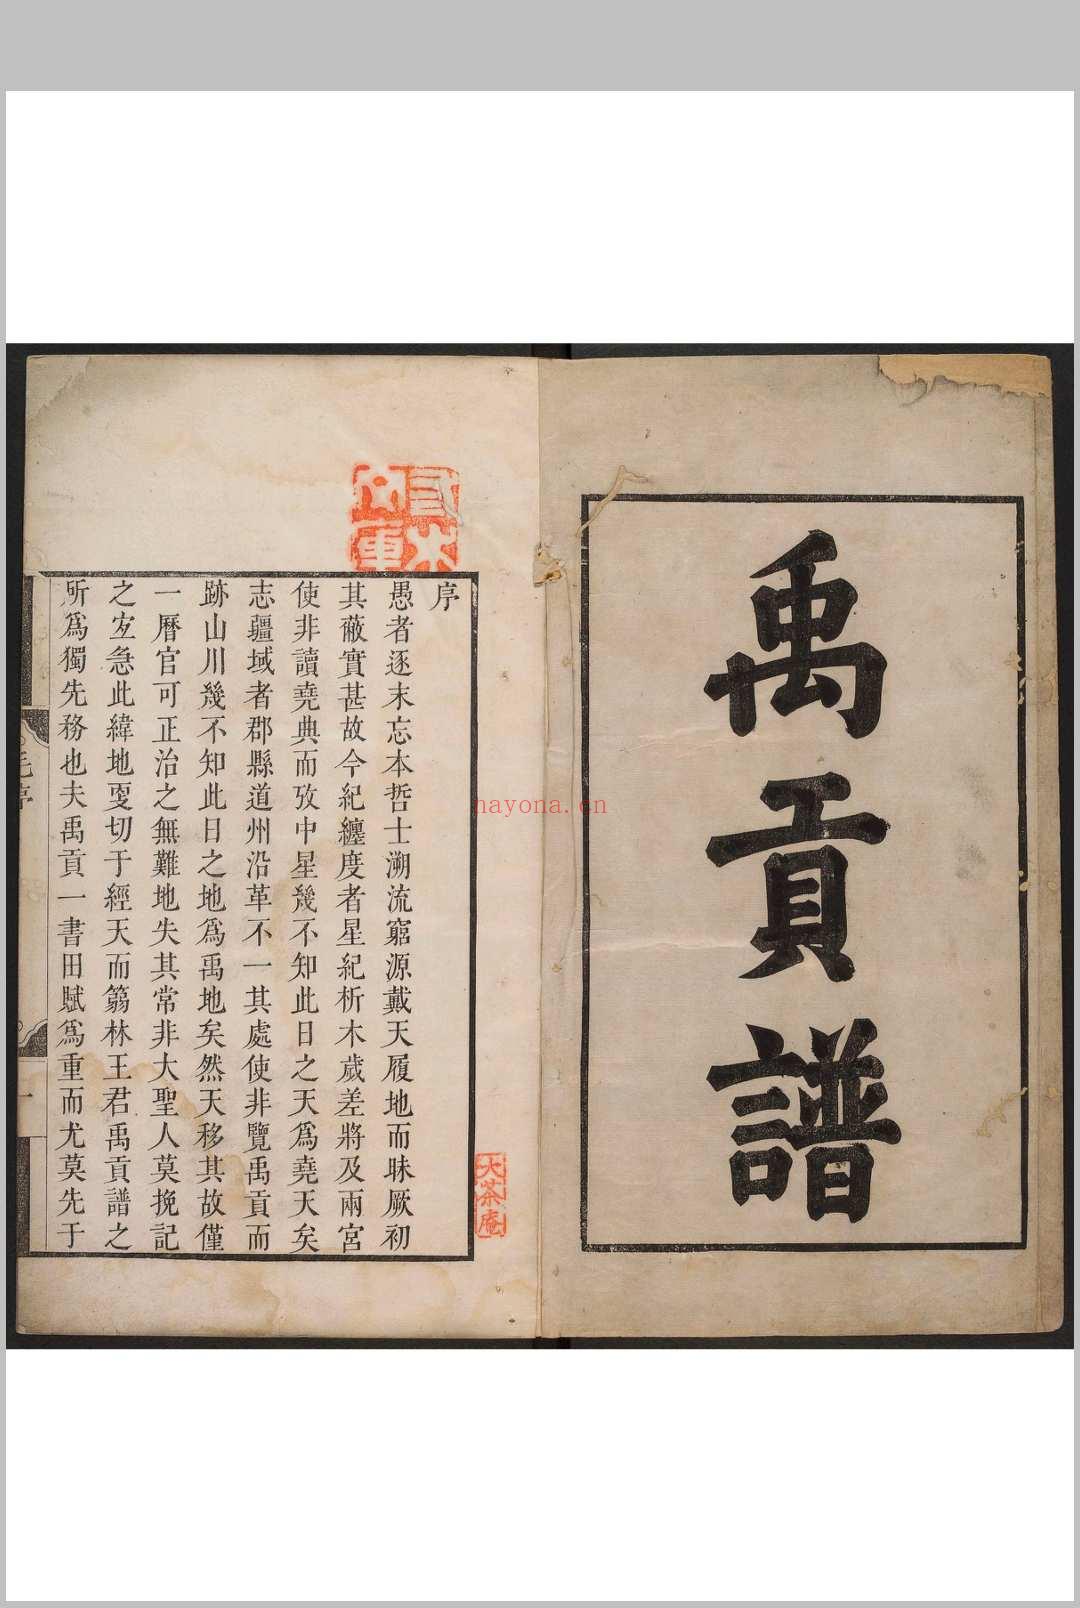 禹貢譜
序
愚者逐末忘本哲士溯流窮源戴天履地而昧厥初
其蔽實甚故今紀纏度者星紀析木歲差將及兩宮
使非讀堯典而攷中星幾不知此日之天爲堯天矣
志疆域者郡縣道州沿革不一其處使非覽禹貢而
跡山川幾不知此日之地爲禹地矣然天移其故僅
一曆官可正治之無難地失其常非大聖人莫挽記
之宐急此緯地㪅切于經天而篛林王君禹貢譜之
所爲獨先務也夫禹貢一書田賦爲重而尤莫先于
大茶庵
nayona.cn